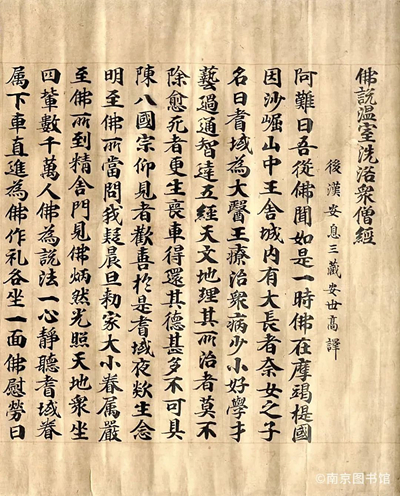 佛說温室洗浴衆僧經
後漢安息三藏安世高譯
阿難曰吾從佛聞如是一時佛在摩竭提國
因沙崛山中王舍城內有大長者奈女之子
名曰耆域為大醫王療治衆病少小好學才
藝過通智達五經天文地理其所治者莫不
除愈死者更生喪車得還其德甚多不可具
陳八國宗仰見者歡善於是耆域夜欻生念
明至佛所當問我疑晨旦勑家大小眷属嚴
至佛所到精舍門見佛炳然光照天地衆坐
四輩數千萬人佛為說法一心靜聽耆域眷
属下車直進為佛作礼各坐一面佛慰勞曰
©南京图书馆